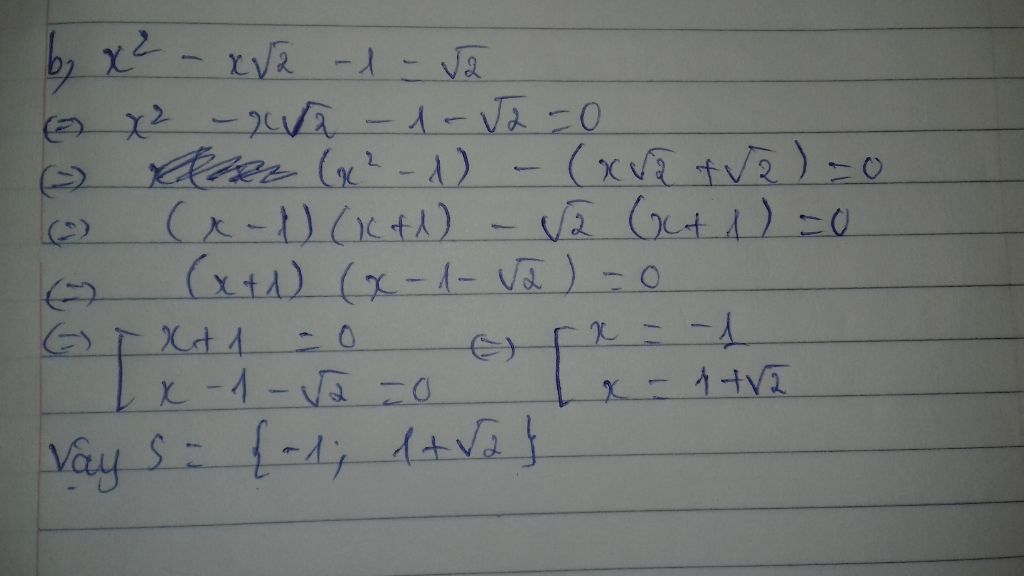 b, x² - x√2 - 1 = √2
(=) x² - x√2 - 1 - √2 = 0
(=) (x² - 1) - (x√2 + √2) = 0
(=) (x - 1)(x + 1) - √2 (x + 1) = 0
(=) (x + 1) (x - 1 - √2) = 0
(=) [ x + 1 = 0 (=) [ x = -1
x - 1 - √2 = 0 x = 1 + √2
Vậy S = {-1; 1 + √2}